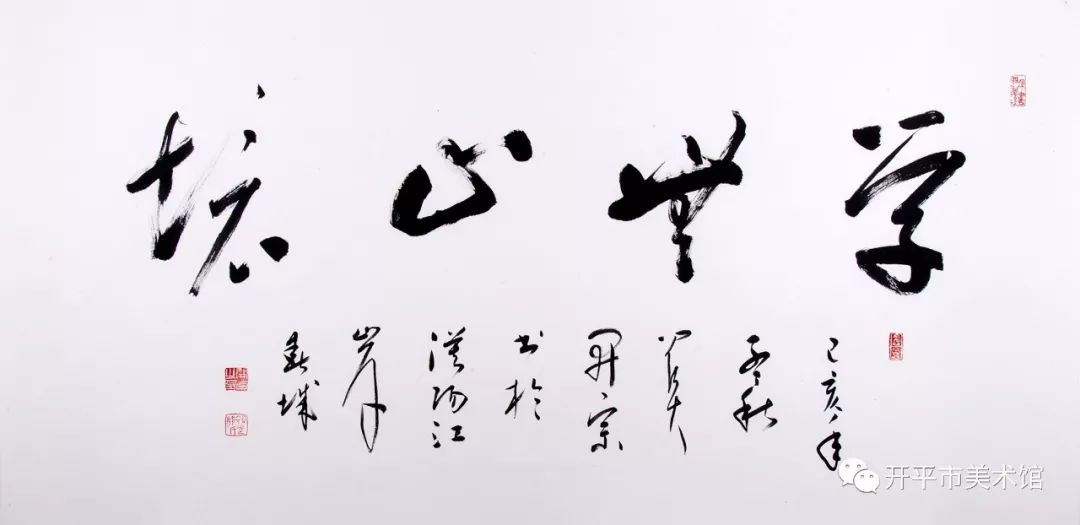 学無止境
己亥年
秋
开宗
书於
漠阳江
岸
春城
开平市美术馆